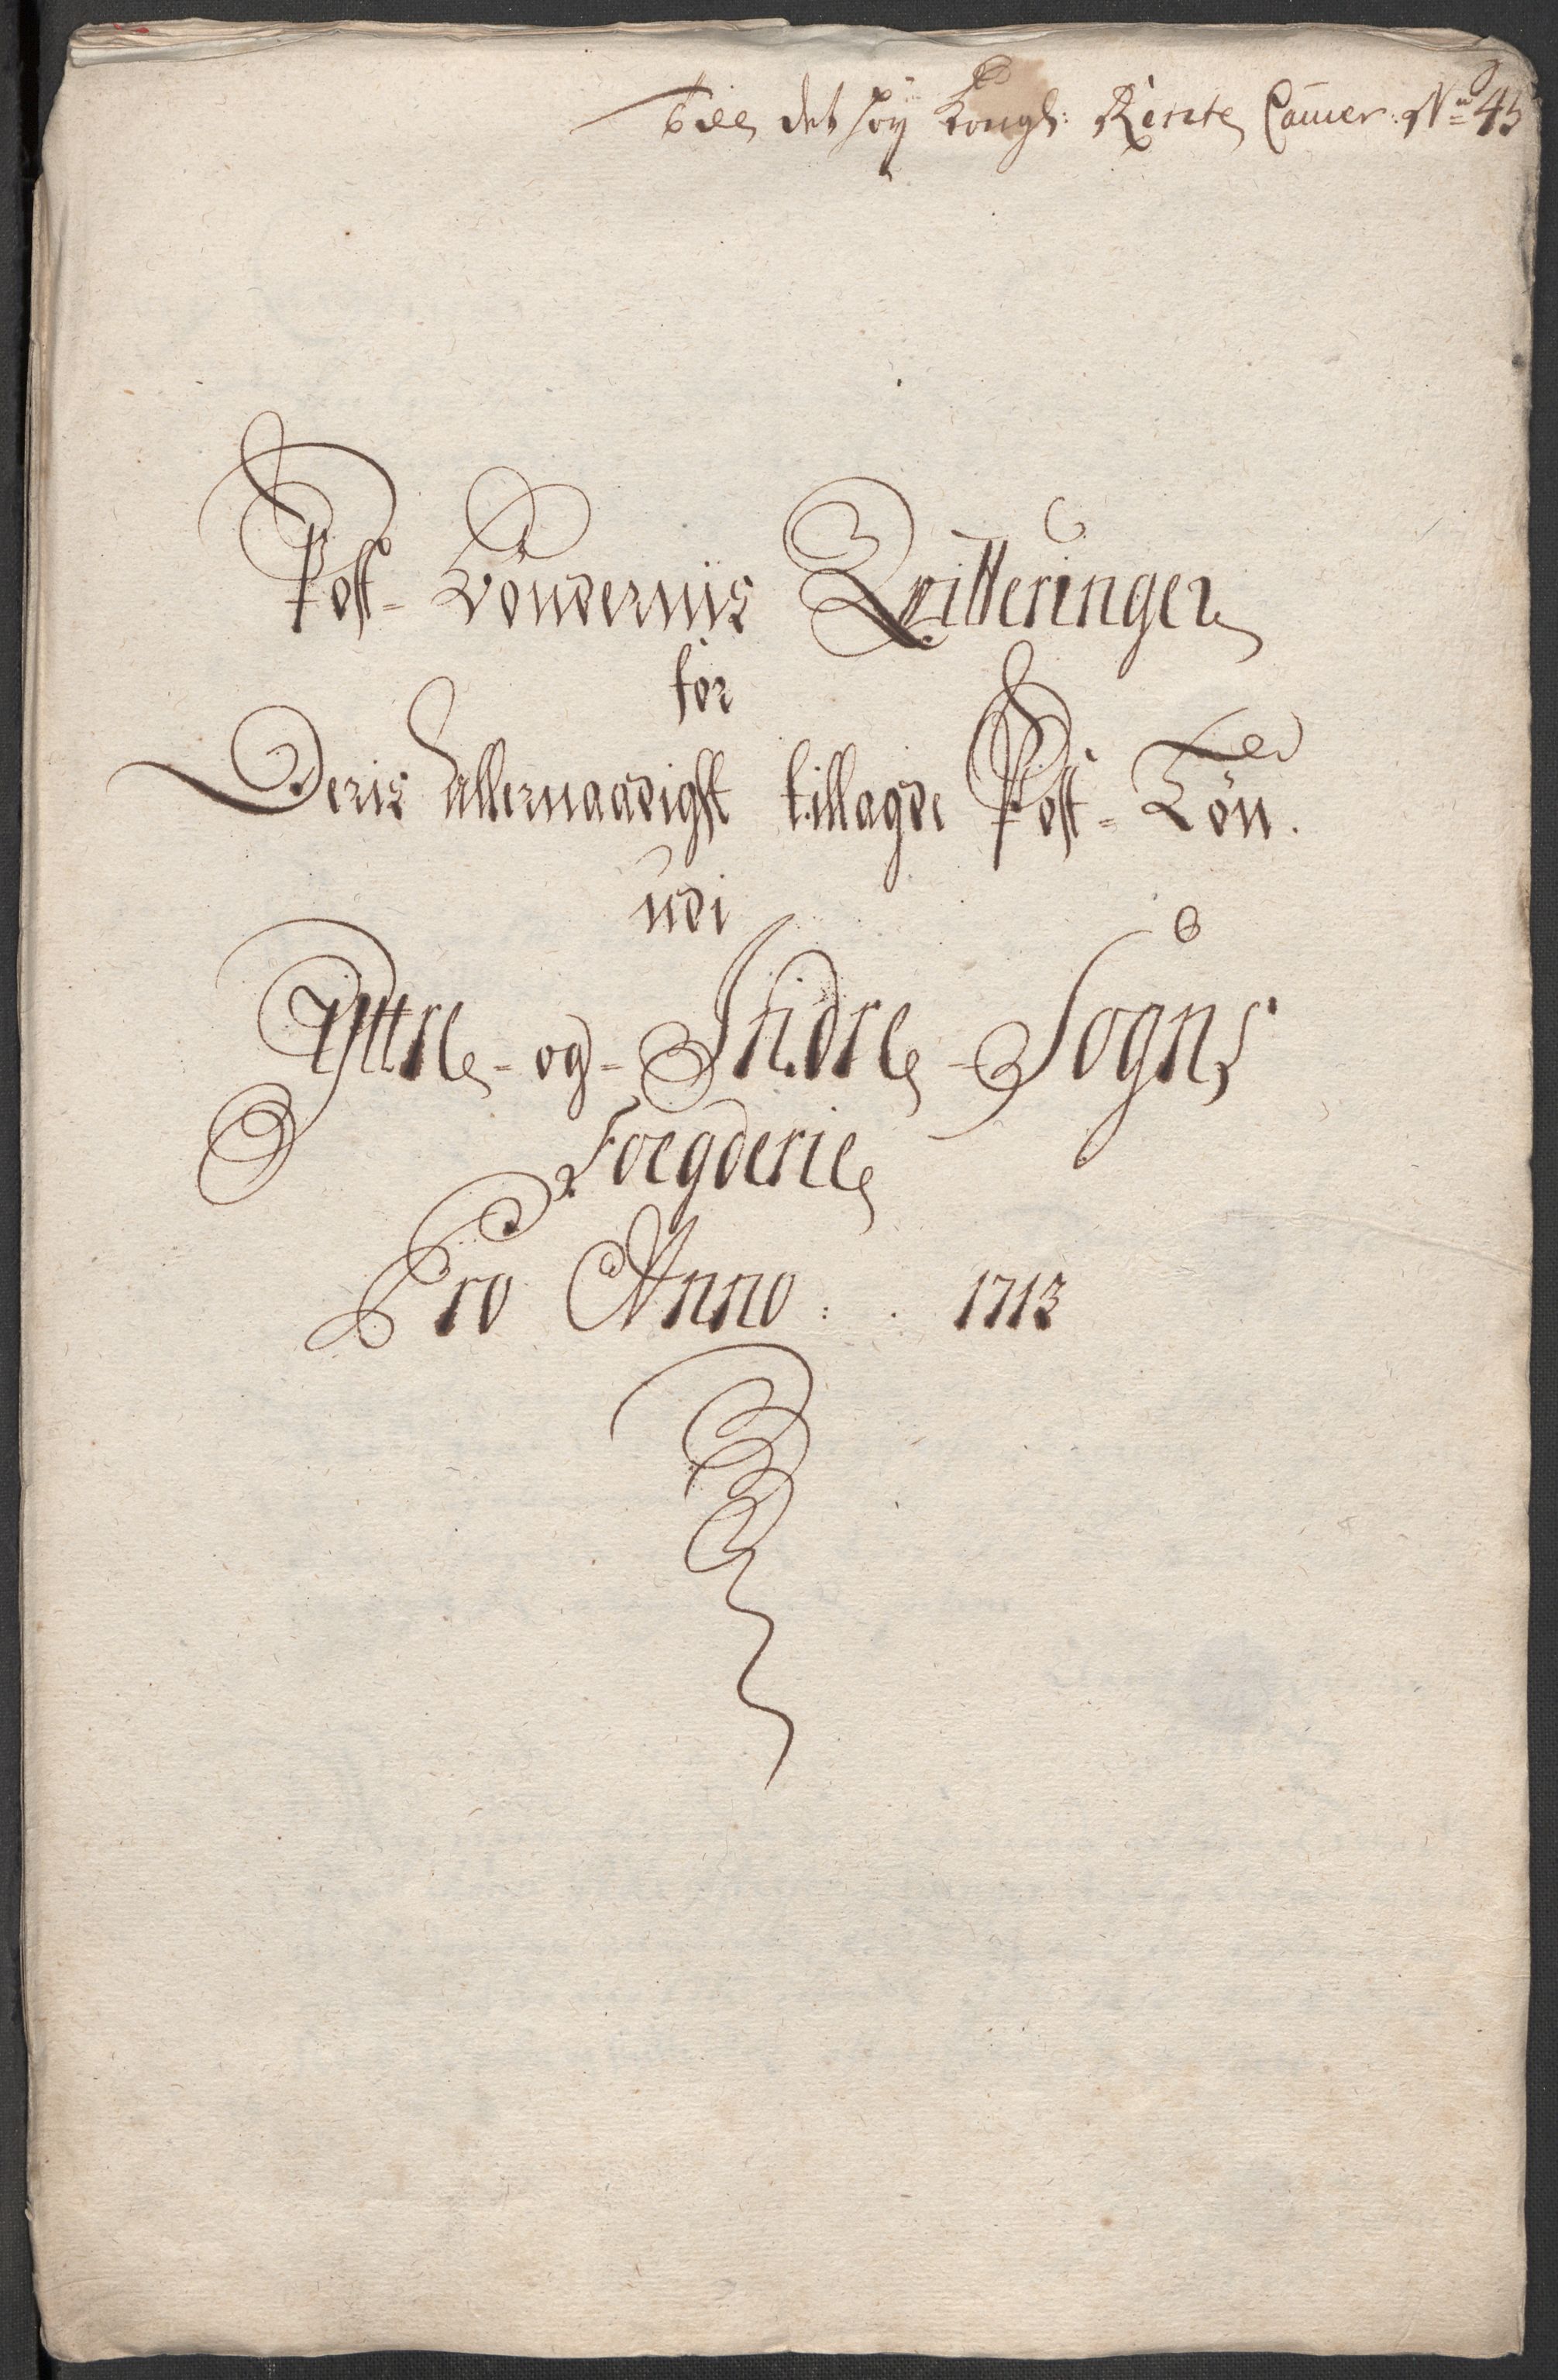 Till det höy Kongl: Rente Camer No 45
Post-Böndernis Qvitteringer
for
Deris allernaadigst tillagde Post-Lön.
udi
Yttre-og-Indre-Sogns
Foegderie
Pro Anno: . 1713